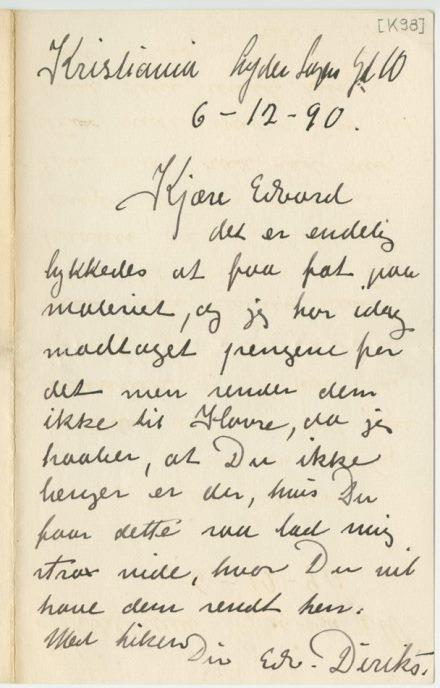 [K98]
Kristiania Lyder Sagns Gd 10
6-12-90.
Kjære Edvard
det er endelig
lykkedes at faa fat paa
maleriet, og jeg har idag
modtaget pengene for
det men sender dem
ikke til Havre, da jeg
haaber, at Du ikke
længer er der, hvis Du
faar dette saa lad mig
strax vide, hvor Du vil
have dem sendt hen.
Med hilsen
Din Edv. Diriks.